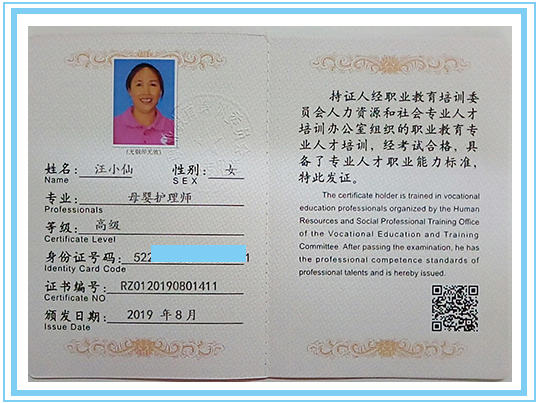 (无钢印无效)
姓名: 汪小仙 性别: 女
Name SEX
专业: 母婴护理师
Professionals
等级: 高级
Certificate Level
身份证号码: 522 1
Identity Card Code
证书编号: RZ0120190801411
Certificate NO
颁发日期: 2019 年 8 月
Issue Date
持证人经职业教育培训委
员会人力资源和社会专业人才
培训办公室组织的职业教育专
业人才培训,经考试合格,具
备了专业人才职业能力标准,
特此发证。
The certificate holder is trained in vocational
education professionals organized by the Human
Resources and Social Professional Training Office
of the Vocational Education and Training
Committee. After passing the examination, he has
the professional competence standards of
professional talents and is hereby issued.